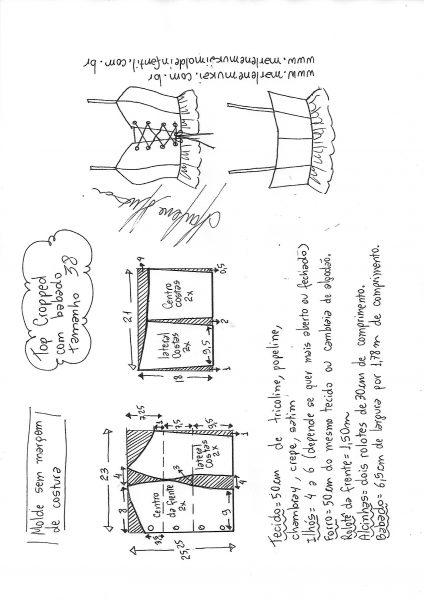 www.marlenemukai.com.br
www.marlenemukaimoldeinfantil.com.br
Top Cropped
com babado
tamanho 38
Molde sem margem
de costura
21
4
18
lateral
costas
2x
Centro
costas
2x
9,5
1
2
0,5
23
8
4
7,25
Centro
da frente
2x
lateral
costas
2x
3
7,5
9,5
1
9
4
1
3,5
25,25
Tecido = 50cm de tricoline, popeline,
chambray, crepe, setim
Ilhós = 4 a 6 (depende se quer mais aberto ou fechado)
Forro = 50cm do mesmo tecido ou cambraia de algodão.
Rolotê da frente = 1,50m
Alcinhas = dois rolotes de 30cm de comprimento.
Babado = 6,5cm de largura por 1,78m de comprimento.